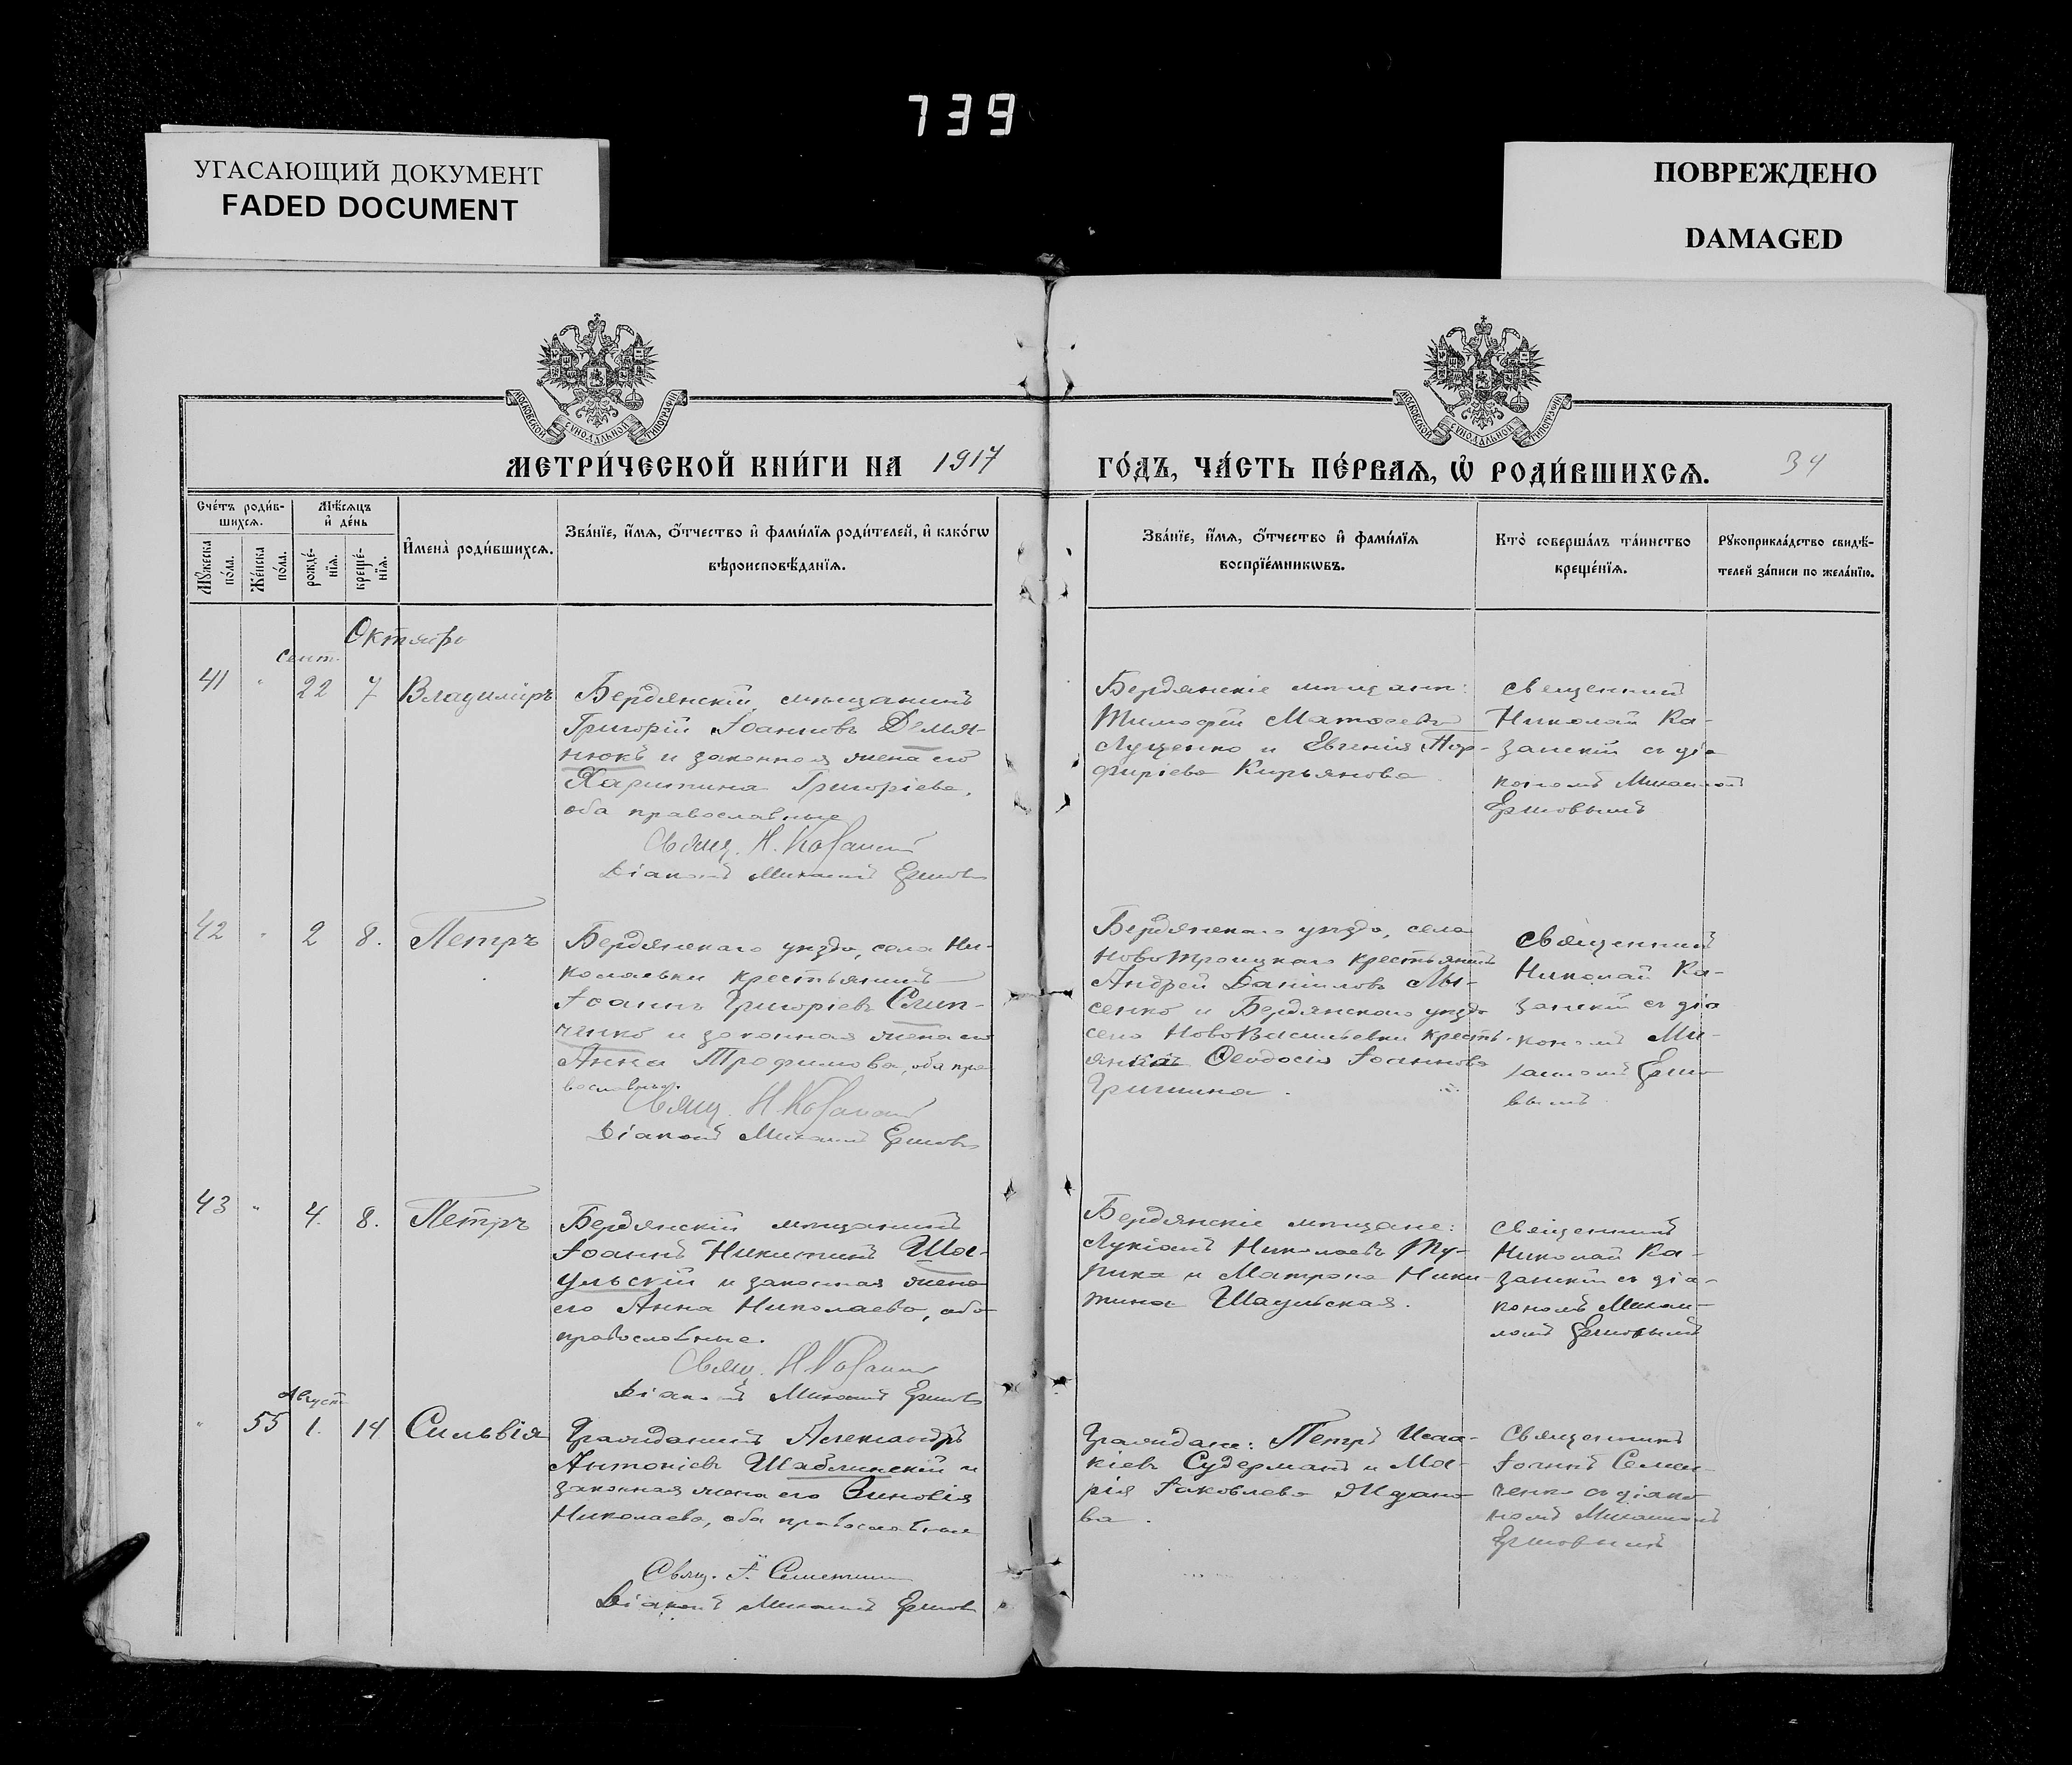 739
УГАСАЮЩИЙ ДОКУМЕНТ
FADED DOCUMENT
ПОВРЕЖДЕНО
DAMAGED
МОСКОВСКОЙ СѴНОДАЛЬНОЙ ТИПОГРАФІИ
МОСКОВСКОЙ СѴНОДАЛЬНОЙ ТИПОГРАФІИ
МЕТРИ́ЧЕСКОЙ КНИ́ГИ НА 1917
ГО́ДЪ, ЧА́СТЬ ПЕ́РВАѦ, Ѡ РОДИ́ВШИХСѦ. 34
Сче́тъ роди́в-
шихсѧ.
Мꙋ́жеска
по́ла.
Же́нска
по́ла.
Мѣ́сѧцъ
и де́нь
рожде́-
нїѧ.
креще́-
нїѧ.
Имена̀ роди́вшихсѧ.
Зва́нїе, и́мѧ, о́тчество и фами́лїѧ роди́телей, и како́гѡ
вѣроисповѣ́данїѧ.
Зва́нїе, и́мѧ, о́тчество и фами́лїѧ
воспрїе́мникѡвъ.
Кто̀ соверша́лъ та́инство
креще́нїѧ.
Рꙋкоприкла́дство свидѣ́-
телей за́писи по жела́нїю.
Октябрь
Сент.
41 " 22 7 Владиміръ
Бердянскій мѣщанинъ
Григорій Іоанновъ Демя-
нюкъ и законная жена его
Харитина Григоріева,
оба православные
Свящ. Н. Казанскій
Діаконъ Михаилъ Ершовъ
Бердянскіе мѣщане:
Тимофей Матѳеевъ
Луценко и Евгенія Пор-
фиріева Кирьянова
Священникъ
Николай Ка-
занскій съ діа
кономъ Михаиломъ
Ершовымъ
42 " 2 8. Петръ
Бердянскаго уѣзда, села Ни-
колаевки крестьянинъ
Іоаннъ Григоріевъ Слип-
ченко и законная жена его
Анна Трофимова, оба пра-
вославные.
Свящ. Н Казанскій
Діаконъ Михаилъ Ершовъ
Бердянскаго уѣзда, села
НовоТроицкаго крестьянинъ
Андрей Даніиловъ Лы-
сенко и Бердянскаго уѣзда
села НовоВасильевки кресть-
янка Ѳеодосія Іоаннова
Гришина.
Священникъ
Николай Ка-
занскій съ діа
кономъ Ми-
хаиломъ Ершо
вымъ
43 " 4. 8. Петръ
Бердянскій мѣщанинъ
Іоаннъ Никитинъ Ша-
ульскій и законная жена
его Анна Николаева, оба
православные.
Свящ. Н Казанскій
Діаконъ Михаилъ Ершовъ
Бердянскіе мѣщане:
Лукіанъ Николаевъ Ту-
рика и Матрона Ники-
тина Шаульская.
Священникъ
Николай Ка-
занскій съ діа-
кономъ Михаи-
ломъ Ершовымъ
Август
" 55 1. 14 Сильвія
Гражданинъ Александръ
Антоніевъ Шаблинскій и
законная жена его Зиновія
Николаева, оба православные
Свящ. І.
Діаконъ Михаилъ Ершовъ
Граждане: Петръ Исаа-
кіевъ Судерманъ и Ма-
рія Іаковлева Ждано-
ва.
Священникъ
Іоаннъ Семен-
ченко съ діако
номъ Михаиломъ
Ершовымъ